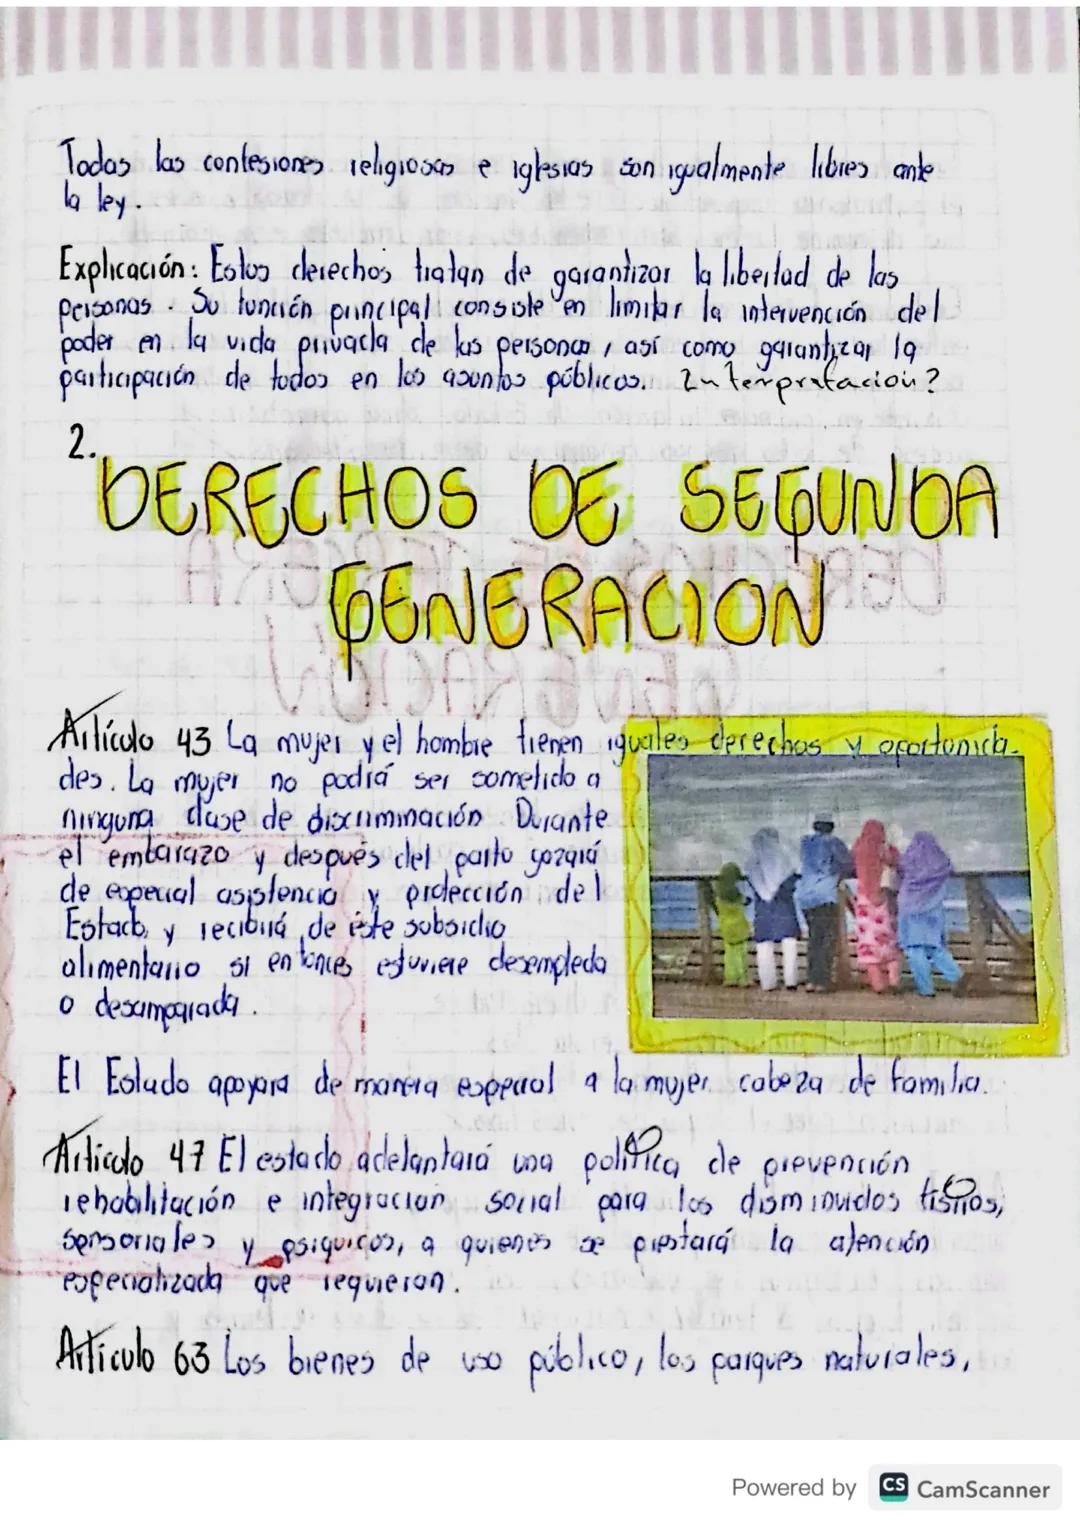 Todas las confesiones religiosas e iglesias son igualmente libres ante
la ley.
Explicación: Estos derechos tratan de garantizar la libertad de las
personas. Su función principal consiste en limitar la intervención del
poder en la vida privada de las personas, así como garantizar la
participación de todos en los asuntos públicos. Interpretación?
2.
DERECHOS DE SEGUNDA
GENERACION
Artículo 43 La mujer y el hombre tienen iguales derechos y oportunida-
des. La mujer no podrá ser sometido a
ninguna clase de discriminación Durante
el embarazo y después del parto gozará
de especial asistencia y protección del
Estado, y recibirá de éste subsidio
alimentario si entonces estuviere desempleda
o desamparada.
El Estado apoyara de manera especial a la mujer cabeza de familia.
Artículo 47 El estado adelantará una política de prevención
rehabilitación e integracion social para los disminuidos físicos,
sensoriales y psiquicos, a quienes se prestará la atención
especializada que requieran.
Artículo 63 Los bienes de uso público, los parques naturales,
Powered by CS CamScanner